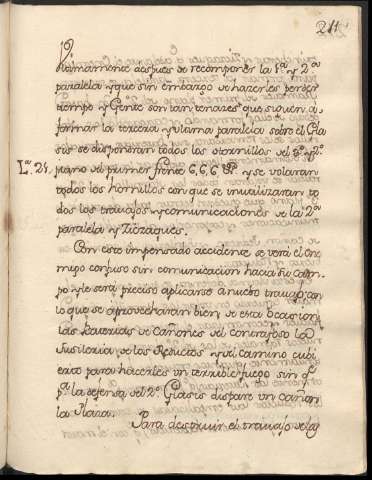 211
Ultimamente despues de recomponer la 1.ª y 2.ª
paralela y que sin embargo de hacerles perder
tiempo y Gente son tan tenazes que siguen à
formar la tercera y ultima paralela sobre el Gla
sis se dispondran todos los ornillos del 1º y 2º
L.ª 21. plano del primer frente G, G, G, &ª y se volaran
todos los hornillos con que se inutilizaran to
dos los travajos y comunicaciones de la 2.ª
paralela y Zizaques.
Con este impensado accidente se verá el ene
migo confuso sin comunicacion hacia su Cam
po y le será preciso aplicarse à nuebo travajo con
lo que se aprovecharan bien de esta Ocasion
las Baterias de Cañones del Contrafoso la
Fusileria de los Reductos y del camino cubi
erto para hacerles un terrible fuego sin q.e
p.ª la defensa del 2º Glasis dispare un Cañon
la Plaza.
Para destruir el travajo de la